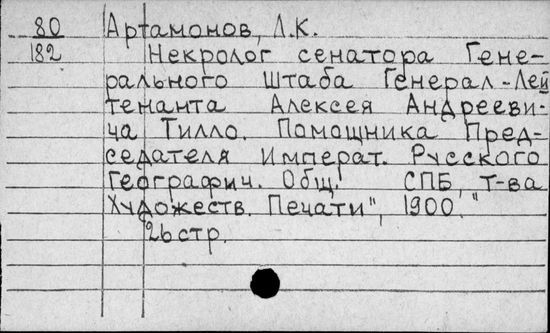 80 Артамонов, Л.К.
182 Некролог сенатора Гене-
рального Штаба Генерал-Лей
тенанта Алексея Андрееви-
ча Тилло. Помощника Пред-
седателя Императ. Русского
Географич. Общ. СПБ, т-ва
Художеств. Печати", 1900."
26 стр.